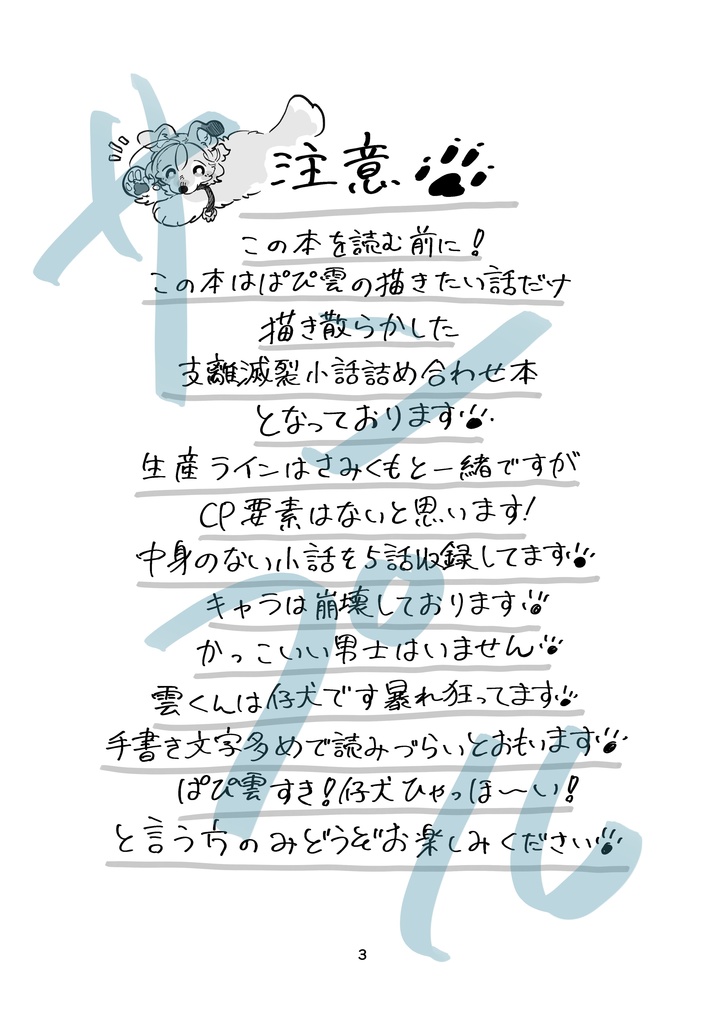 注意
この本を読む前に！
この本はぱぴ雲の描きたい話だけ
描き散らかした
支離滅裂小話詰め合わせ本
となっております
生産ラインはさみくもと一緒ですが
CP要素はないと思います！
中身のない小話を5話収録してます
キャラは崩壊しております
かっこいい男士はいません
雲くんは仔犬です暴れ狂ってます
手書き文字多めで読みづらいとおもいます
ぱぴ雲すき！仔犬ひゃっほ〜い！
と言う方のみどうぞお楽しみください
サンプル
3